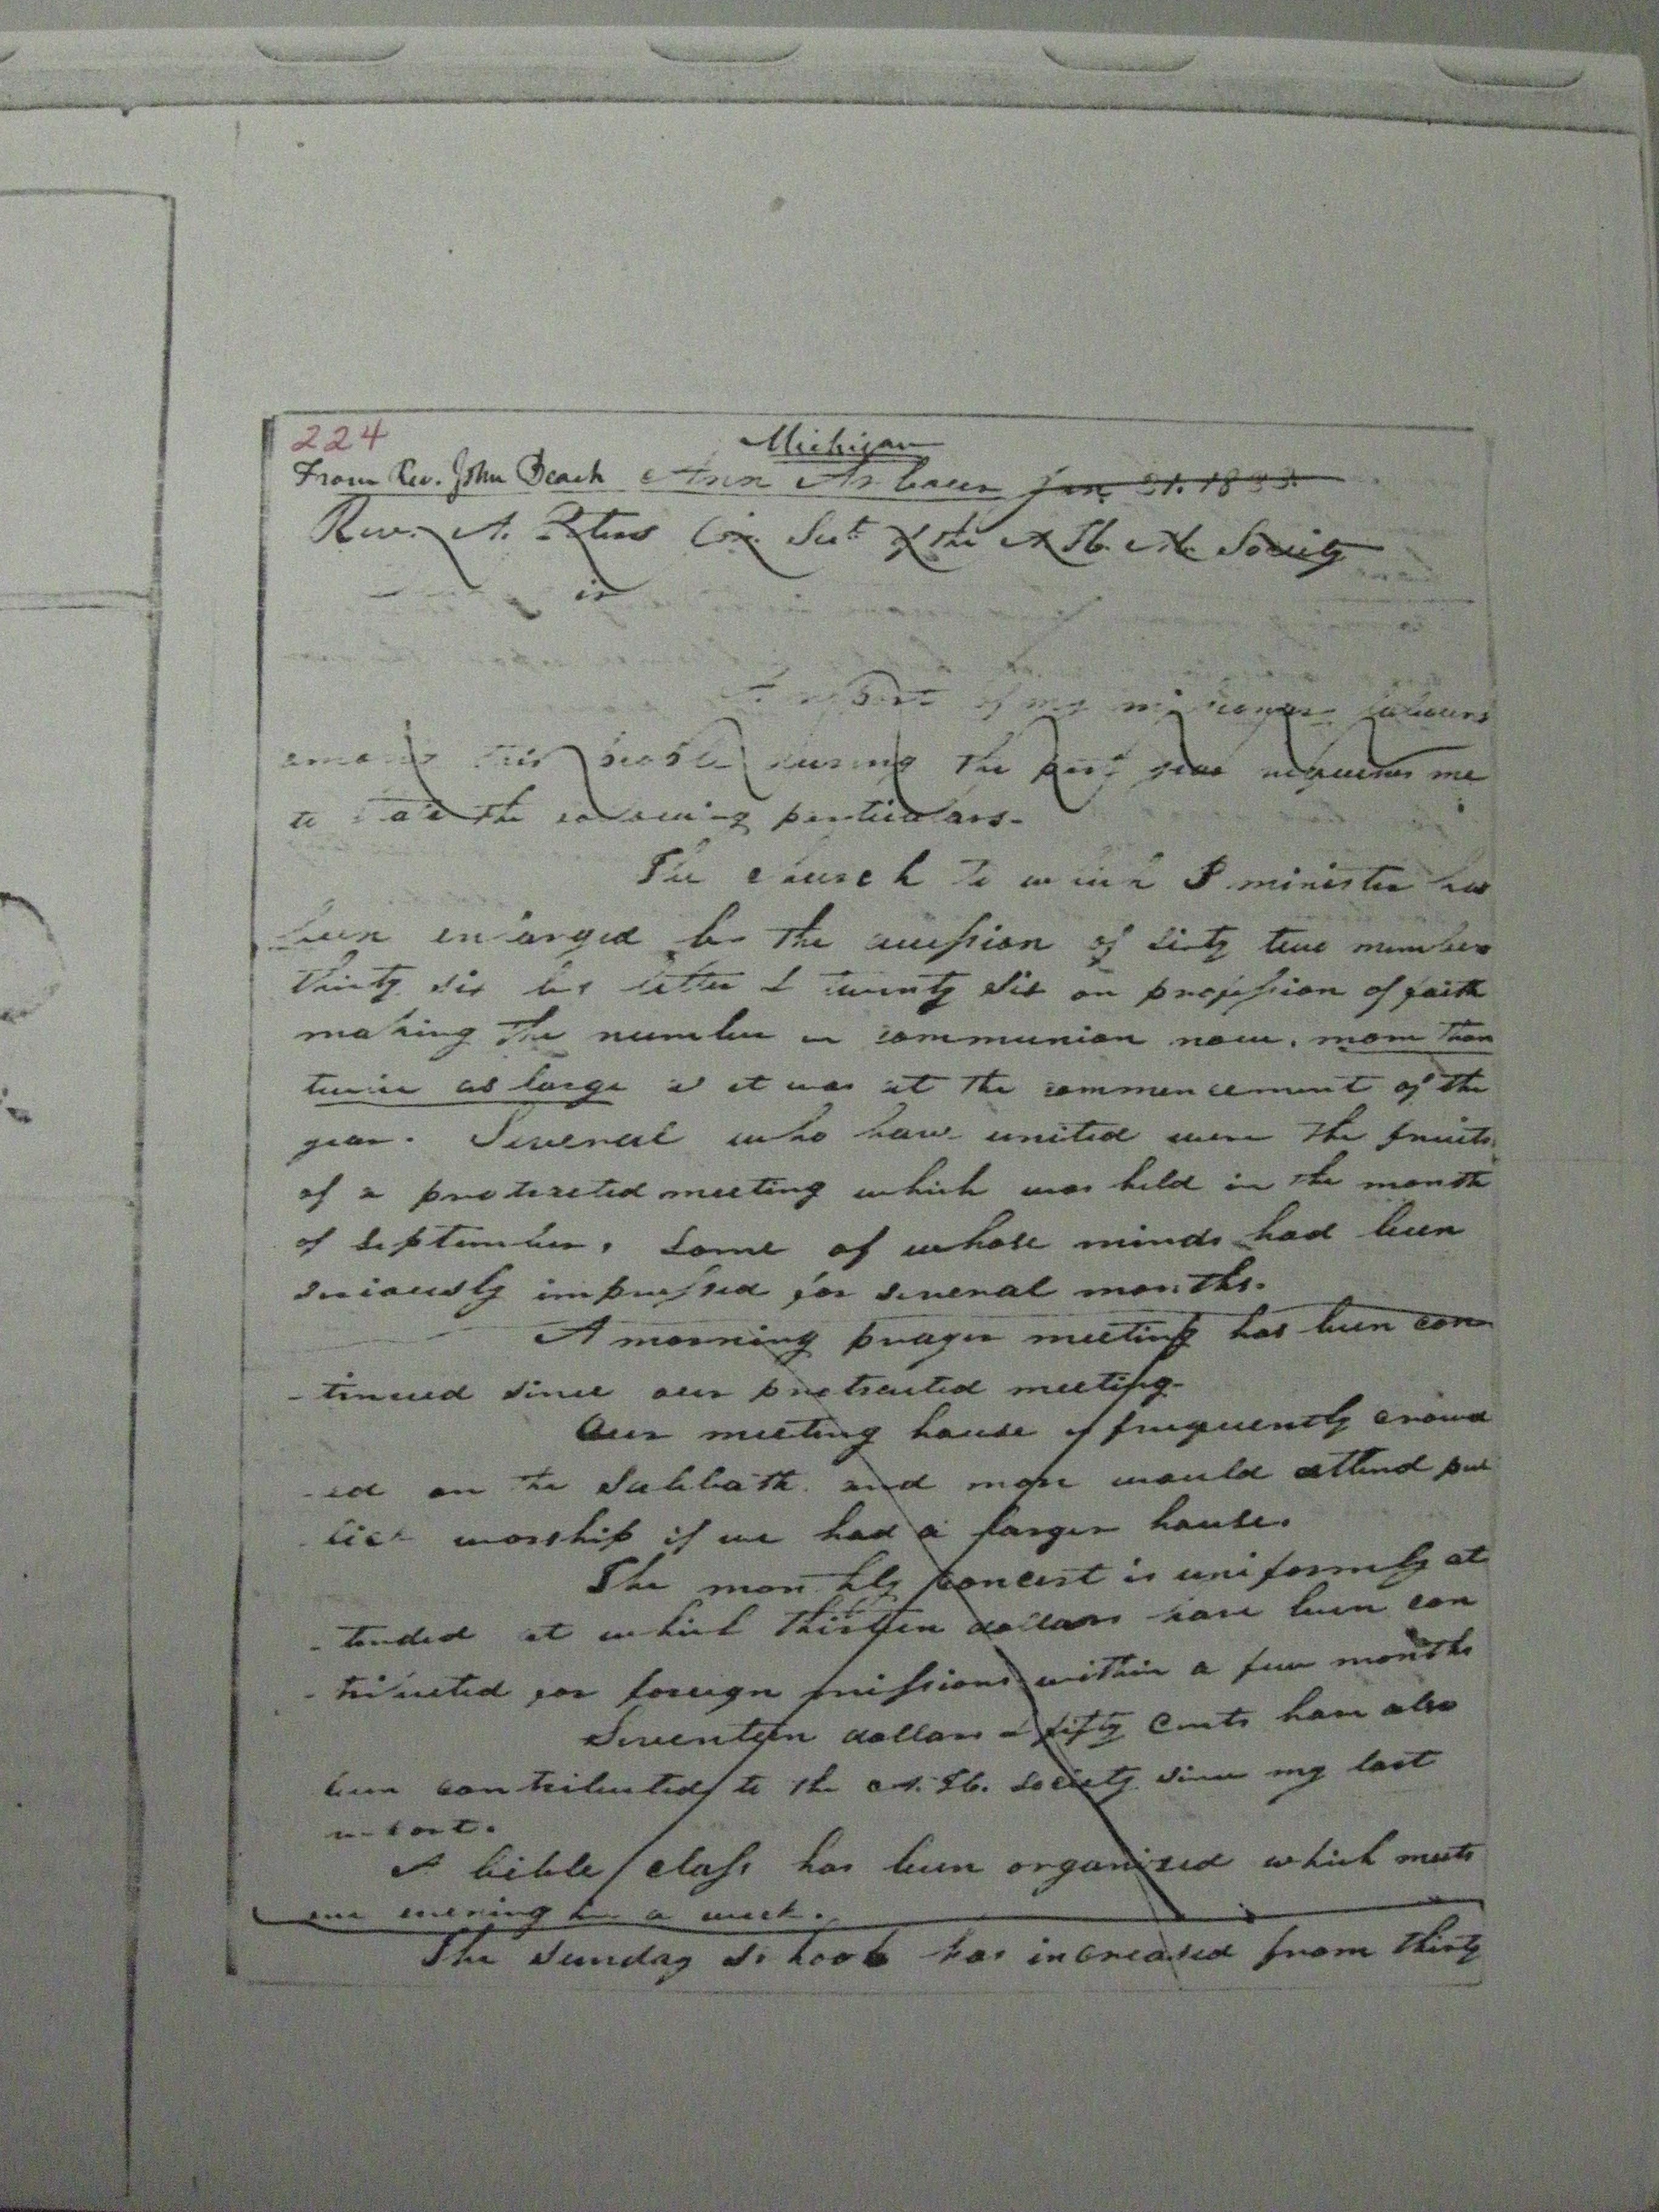 224
Michigan
From Rev. John Beach Ann Arbour Jan. 31. 1833.
Rev. A. Peters Cor. Sect. of the A H. M. Society
report of my missionary labours
among this people during the past year requires me
to state the following particulars-
The church to which I minister has
been enlarged by the accession of sixty two members
thirty six by letter & twenty six on profession of faith
making the number in communion now, more than
twice as large as it was at the commencement of the
year. Several who have united were the fruits
of a protracted meeting which was held in the month
of September, some of whose minds had been
seriously impressed for several months.
A morning prayer meeting has been con
-tinued since our protracted meeting-
Our meeting house is frequently crowd
-ed on the Sabbath and more would attend pub
lick worship if we had a larger house.
The monthly concert is uniformly at
-tended at which thirteen dollars have been con
-tributed for foreign missions within a few months
Seventeen dollars & fifty Cents have also
been contributed to the A. H. Society since my last
report.
A bible class has been organized which meets
one evening in a week.
The Sunday School has increased from thirty